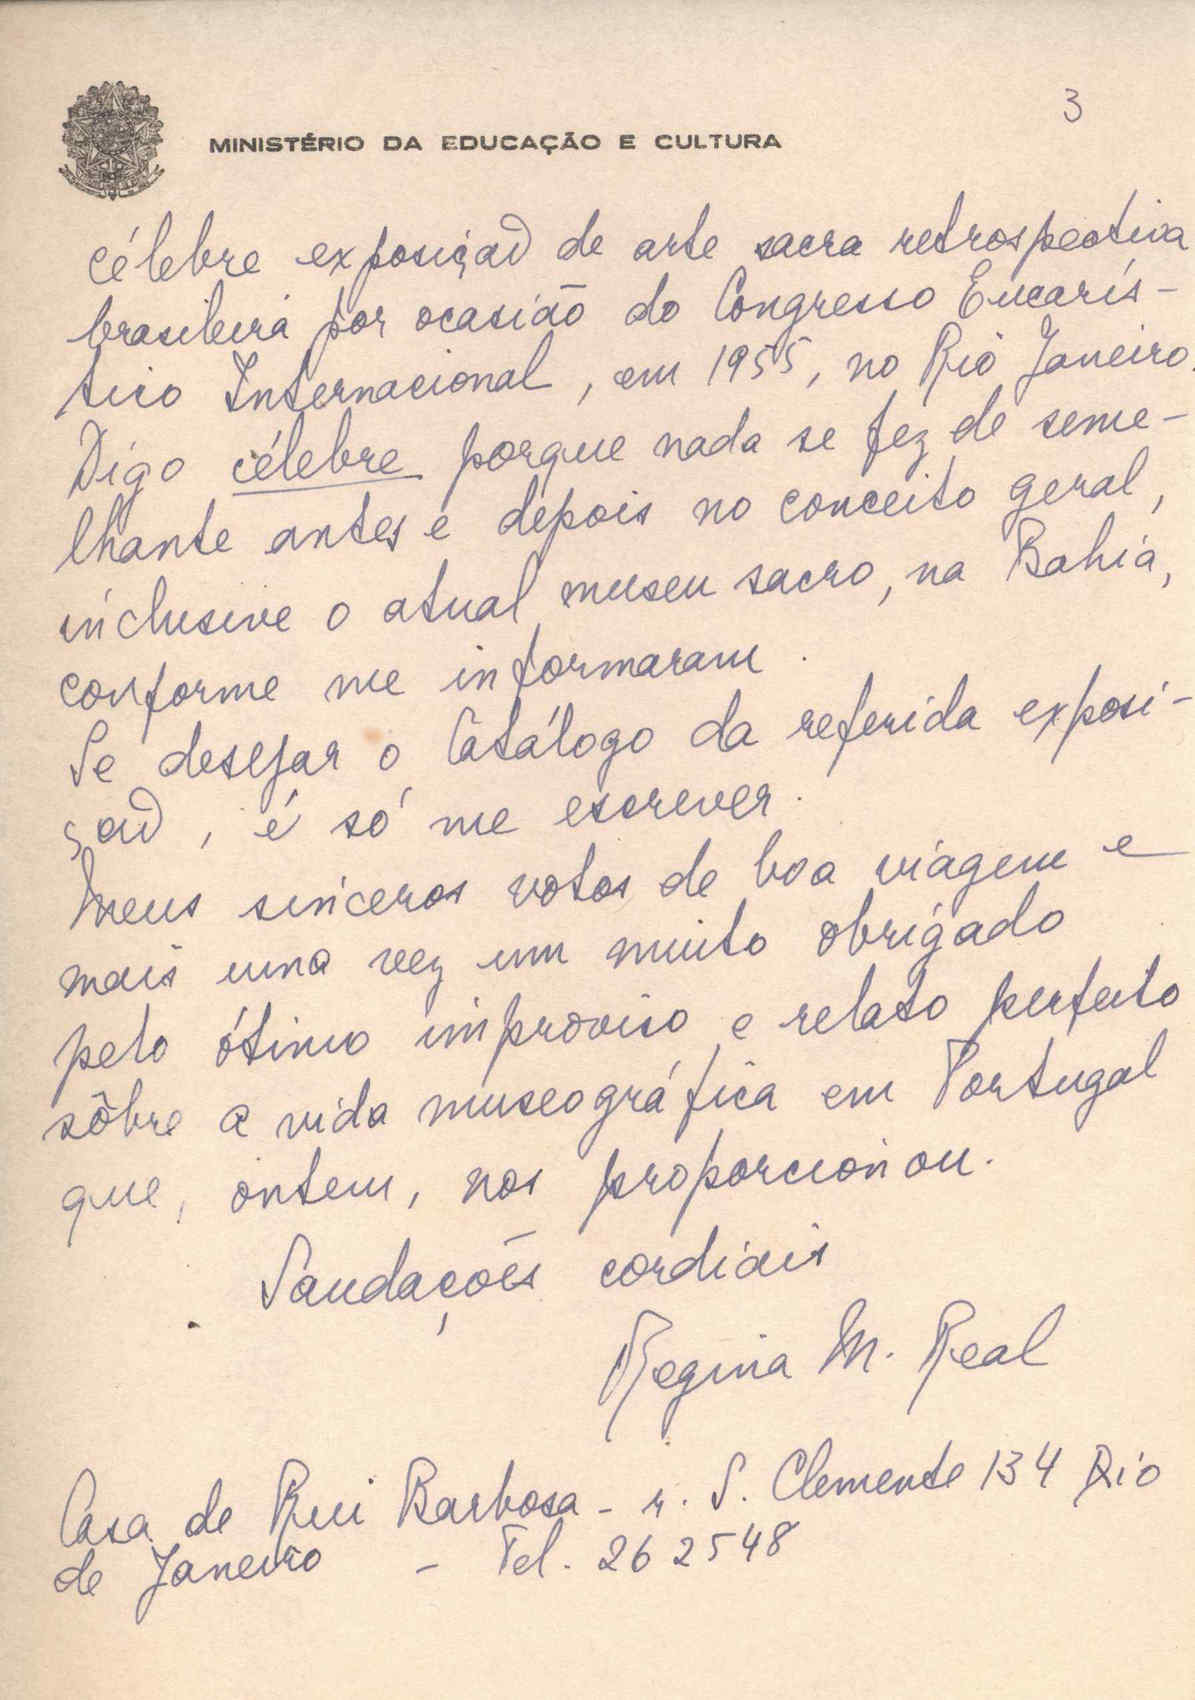 3
MINISTÉRIO DA EDUCAÇÃO E CULTURA
célebre exposição de arte sacra retrospectiva
brasileira por ocasião do Congresso Eucarís-
tico Internacional, em 1955, no Rio Janeiro.
Digo célebre porque nada se fez de seme-
lhante antes e depois no conceito geral,
inclusive o atual museu sacro, na Bahia,
conforme me informaram.
Se desejar o Catálogo da referida exposi-
ção, é só me escrever.
Meus sinceros votos de boa viagem e
mais uma vez um muito obrigado
pelo ótimo improviso e relato perfeito
sôbre a vida museográfica em Portugal
que, ontem, nos proporcionou.
Saudações cordiais
Regina M. Real
Casa de Rui Barbosa - r. S. Clemente 134 Rio
de Janeiro - Tel. 262548